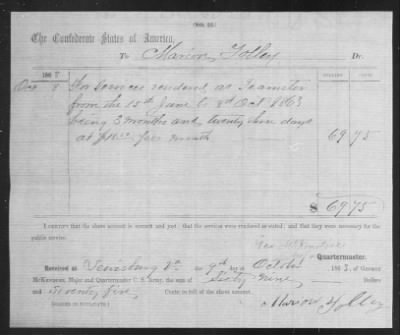 The Confederate States of America,
To Marion Holley Dr.
DOLLARS CENTS
1863
Oct 8 For services rendered as Teamster
from the 15th June to 8th Oct 1863
being 3 months and twenty three days
at per month 69 75
$ 69 75
I CERTIFY that the above account is correct and just; that the services were rendered as stated; and that they were necessary for the
public service.
Quartermaster.
RECEIVED at Lewisburg Va 9th day of October 1863, of
McKendree, Major and Quartermaster C. S. Army, the sum of Sixty Nine Dollars
and Seventy five Cents in full of the above account.
(SIGNED IN DUPLICATE.) Marion Holley